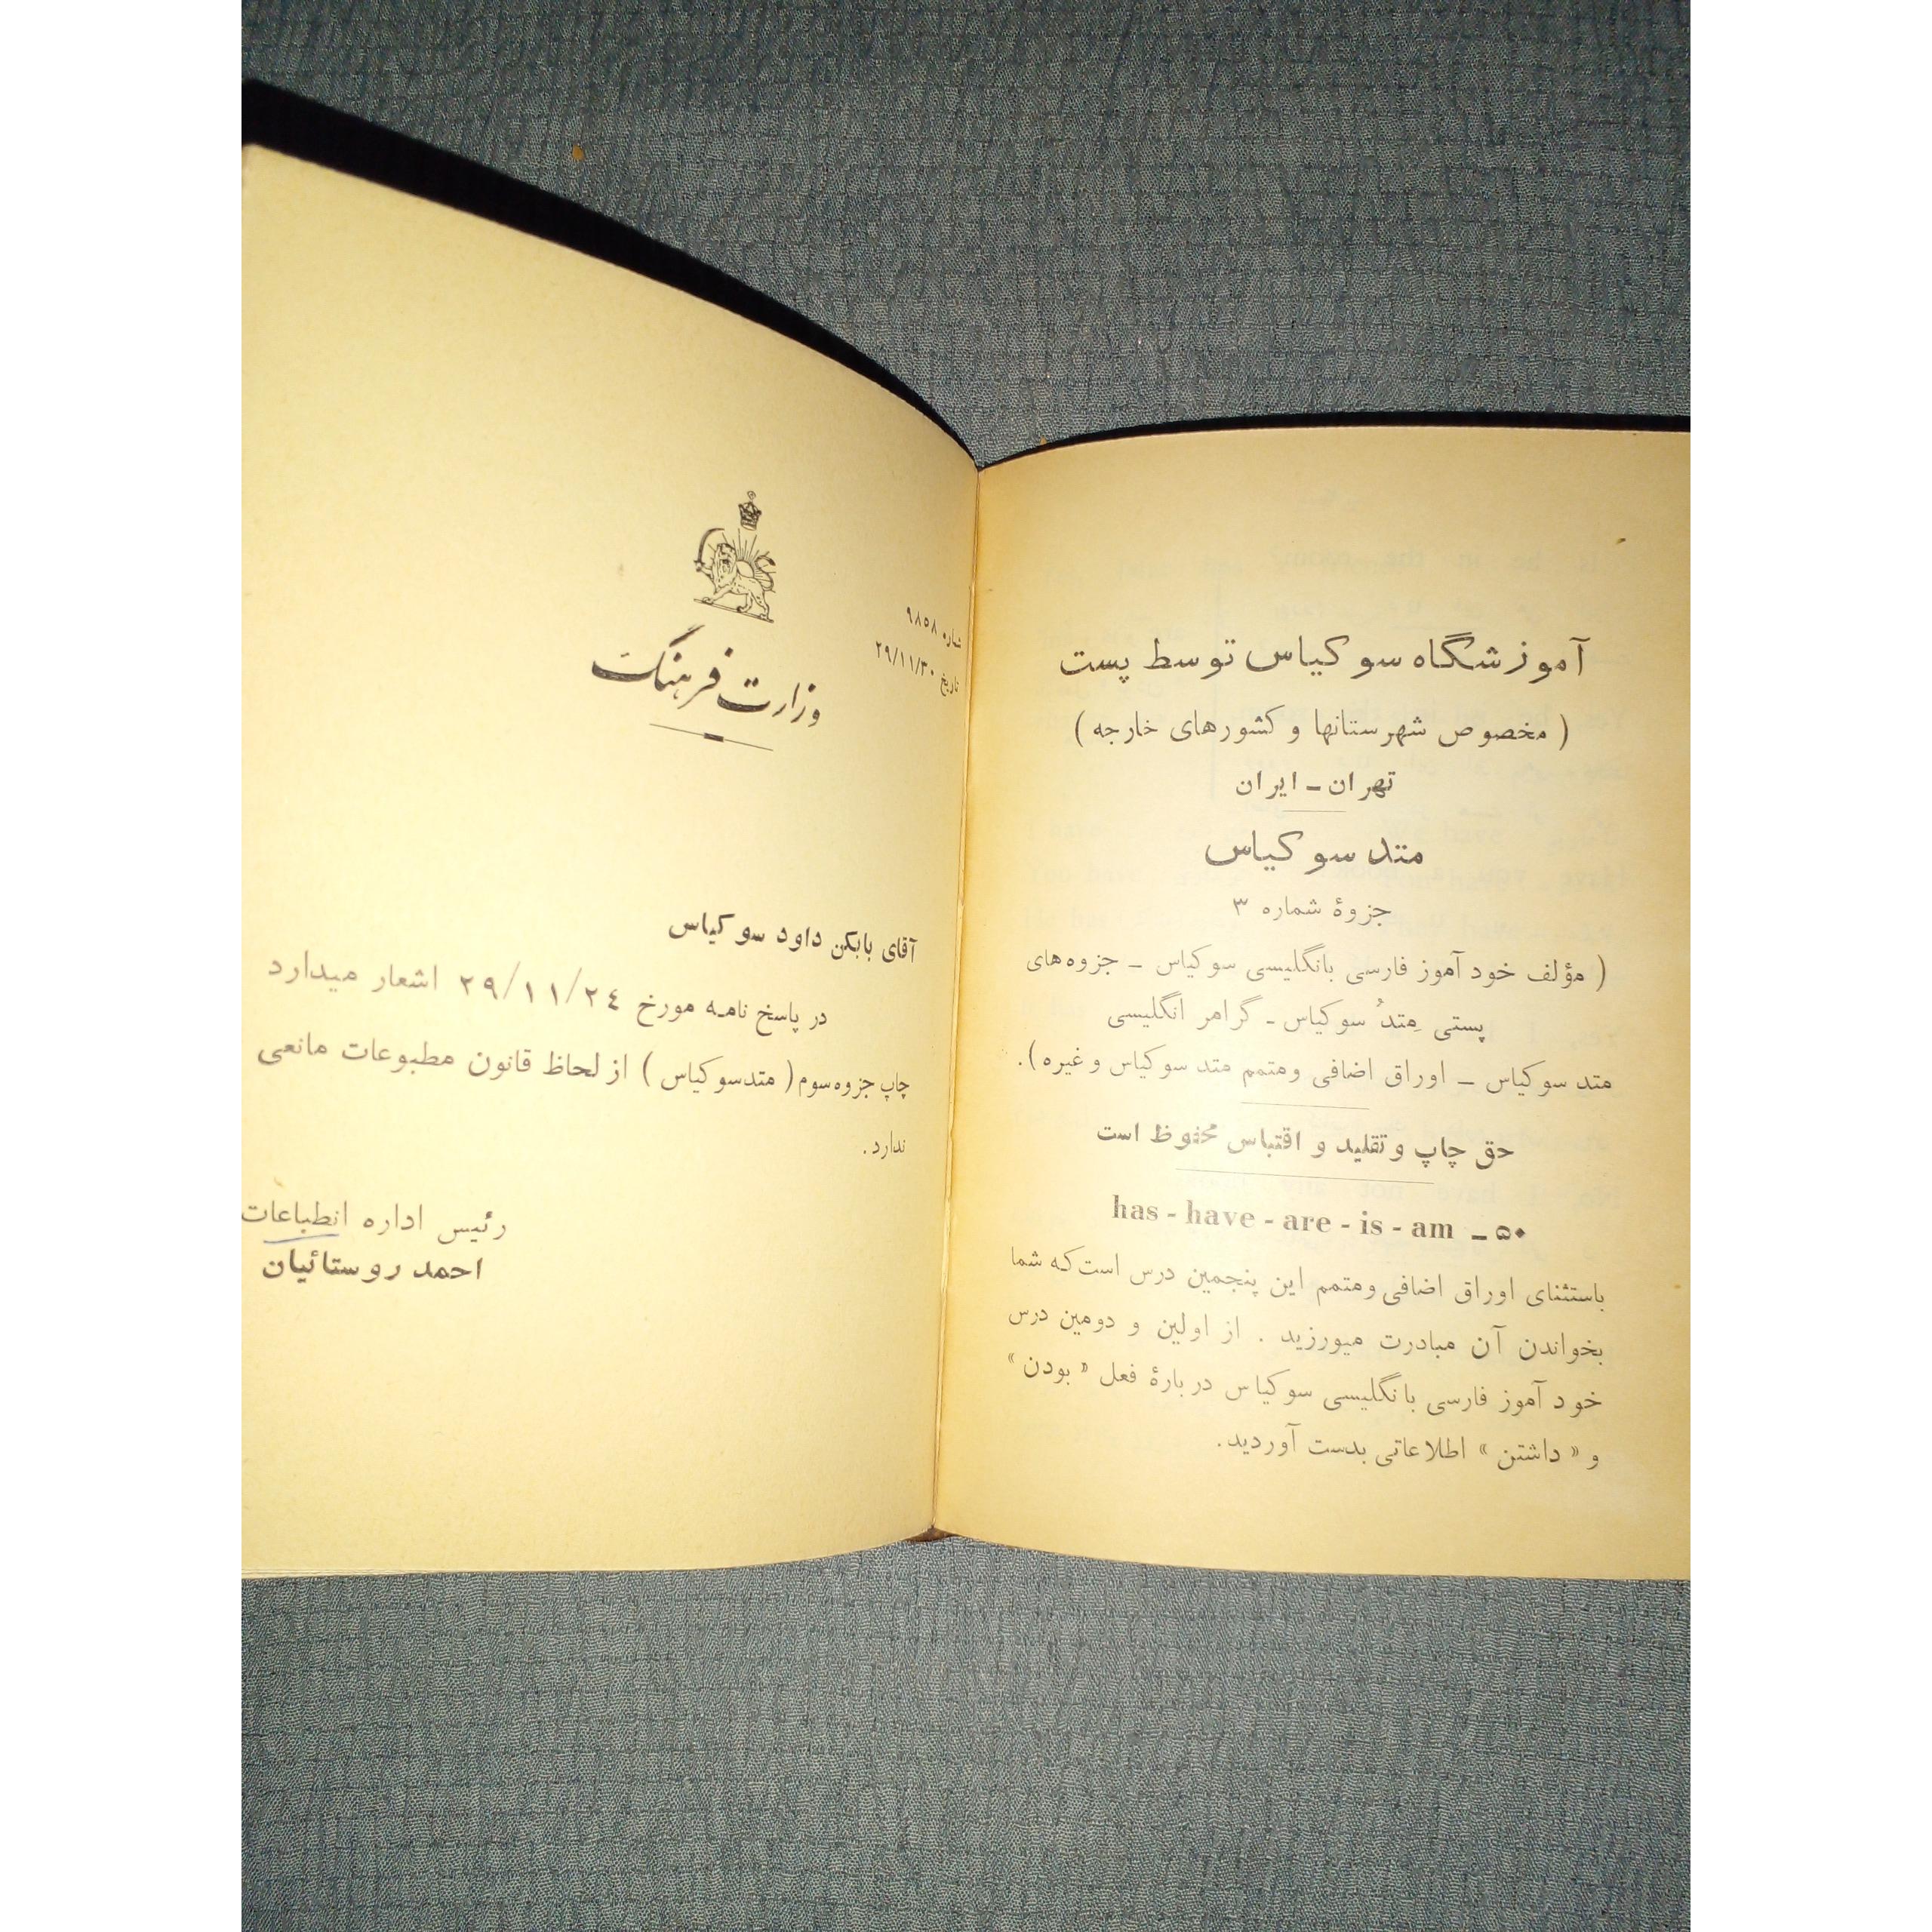 آموزشگاه سوکیاس توسط پست
( مخصوص شهرستانها و کشورهای خارجه )
تهران ـ ایران
متد سوکیاس
جزوهٔ شماره ۳
( مؤلف خود آموز فارسی بانگلیسی سوکیاس ـ جزوه‌های
پستی مِتدُ سوکیاس ـ گرامر انگلیسی
متد سوکیاس ـ اوراق اضافی ومتمم متد سوکیاس و غیره ) .
حق چاپ و تقلید و اقتباس محفوظ است
۵۰ ـ has - have - are - is - am
باستثنای اوراق اضافی ومتمم این پنجمین درس است که شما
بخواندن آن مبادرت میورزید . از اولین و دومین درس
خود آموز فارسی بانگلیسی سوکیاس در بارهٔ فعل « بودن »
و « داشتن » اطلاعاتی بدست آوردید .
شماره ۹۸۵۸
تاریخ ۲۹/۱۱/۳۰
وزارت فرهنگ
آقای بابکن داود سوکیاس
در پاسخ نامه مورخ ۲۹/۱۱/۲٤ اشعار میدارد
چاپ جزوه سوم ( متد سوکیاس ) از لحاظ قانون مطبوعات مانعی
ندارد .
رئیس اداره انطباعات
احمد روستائیان